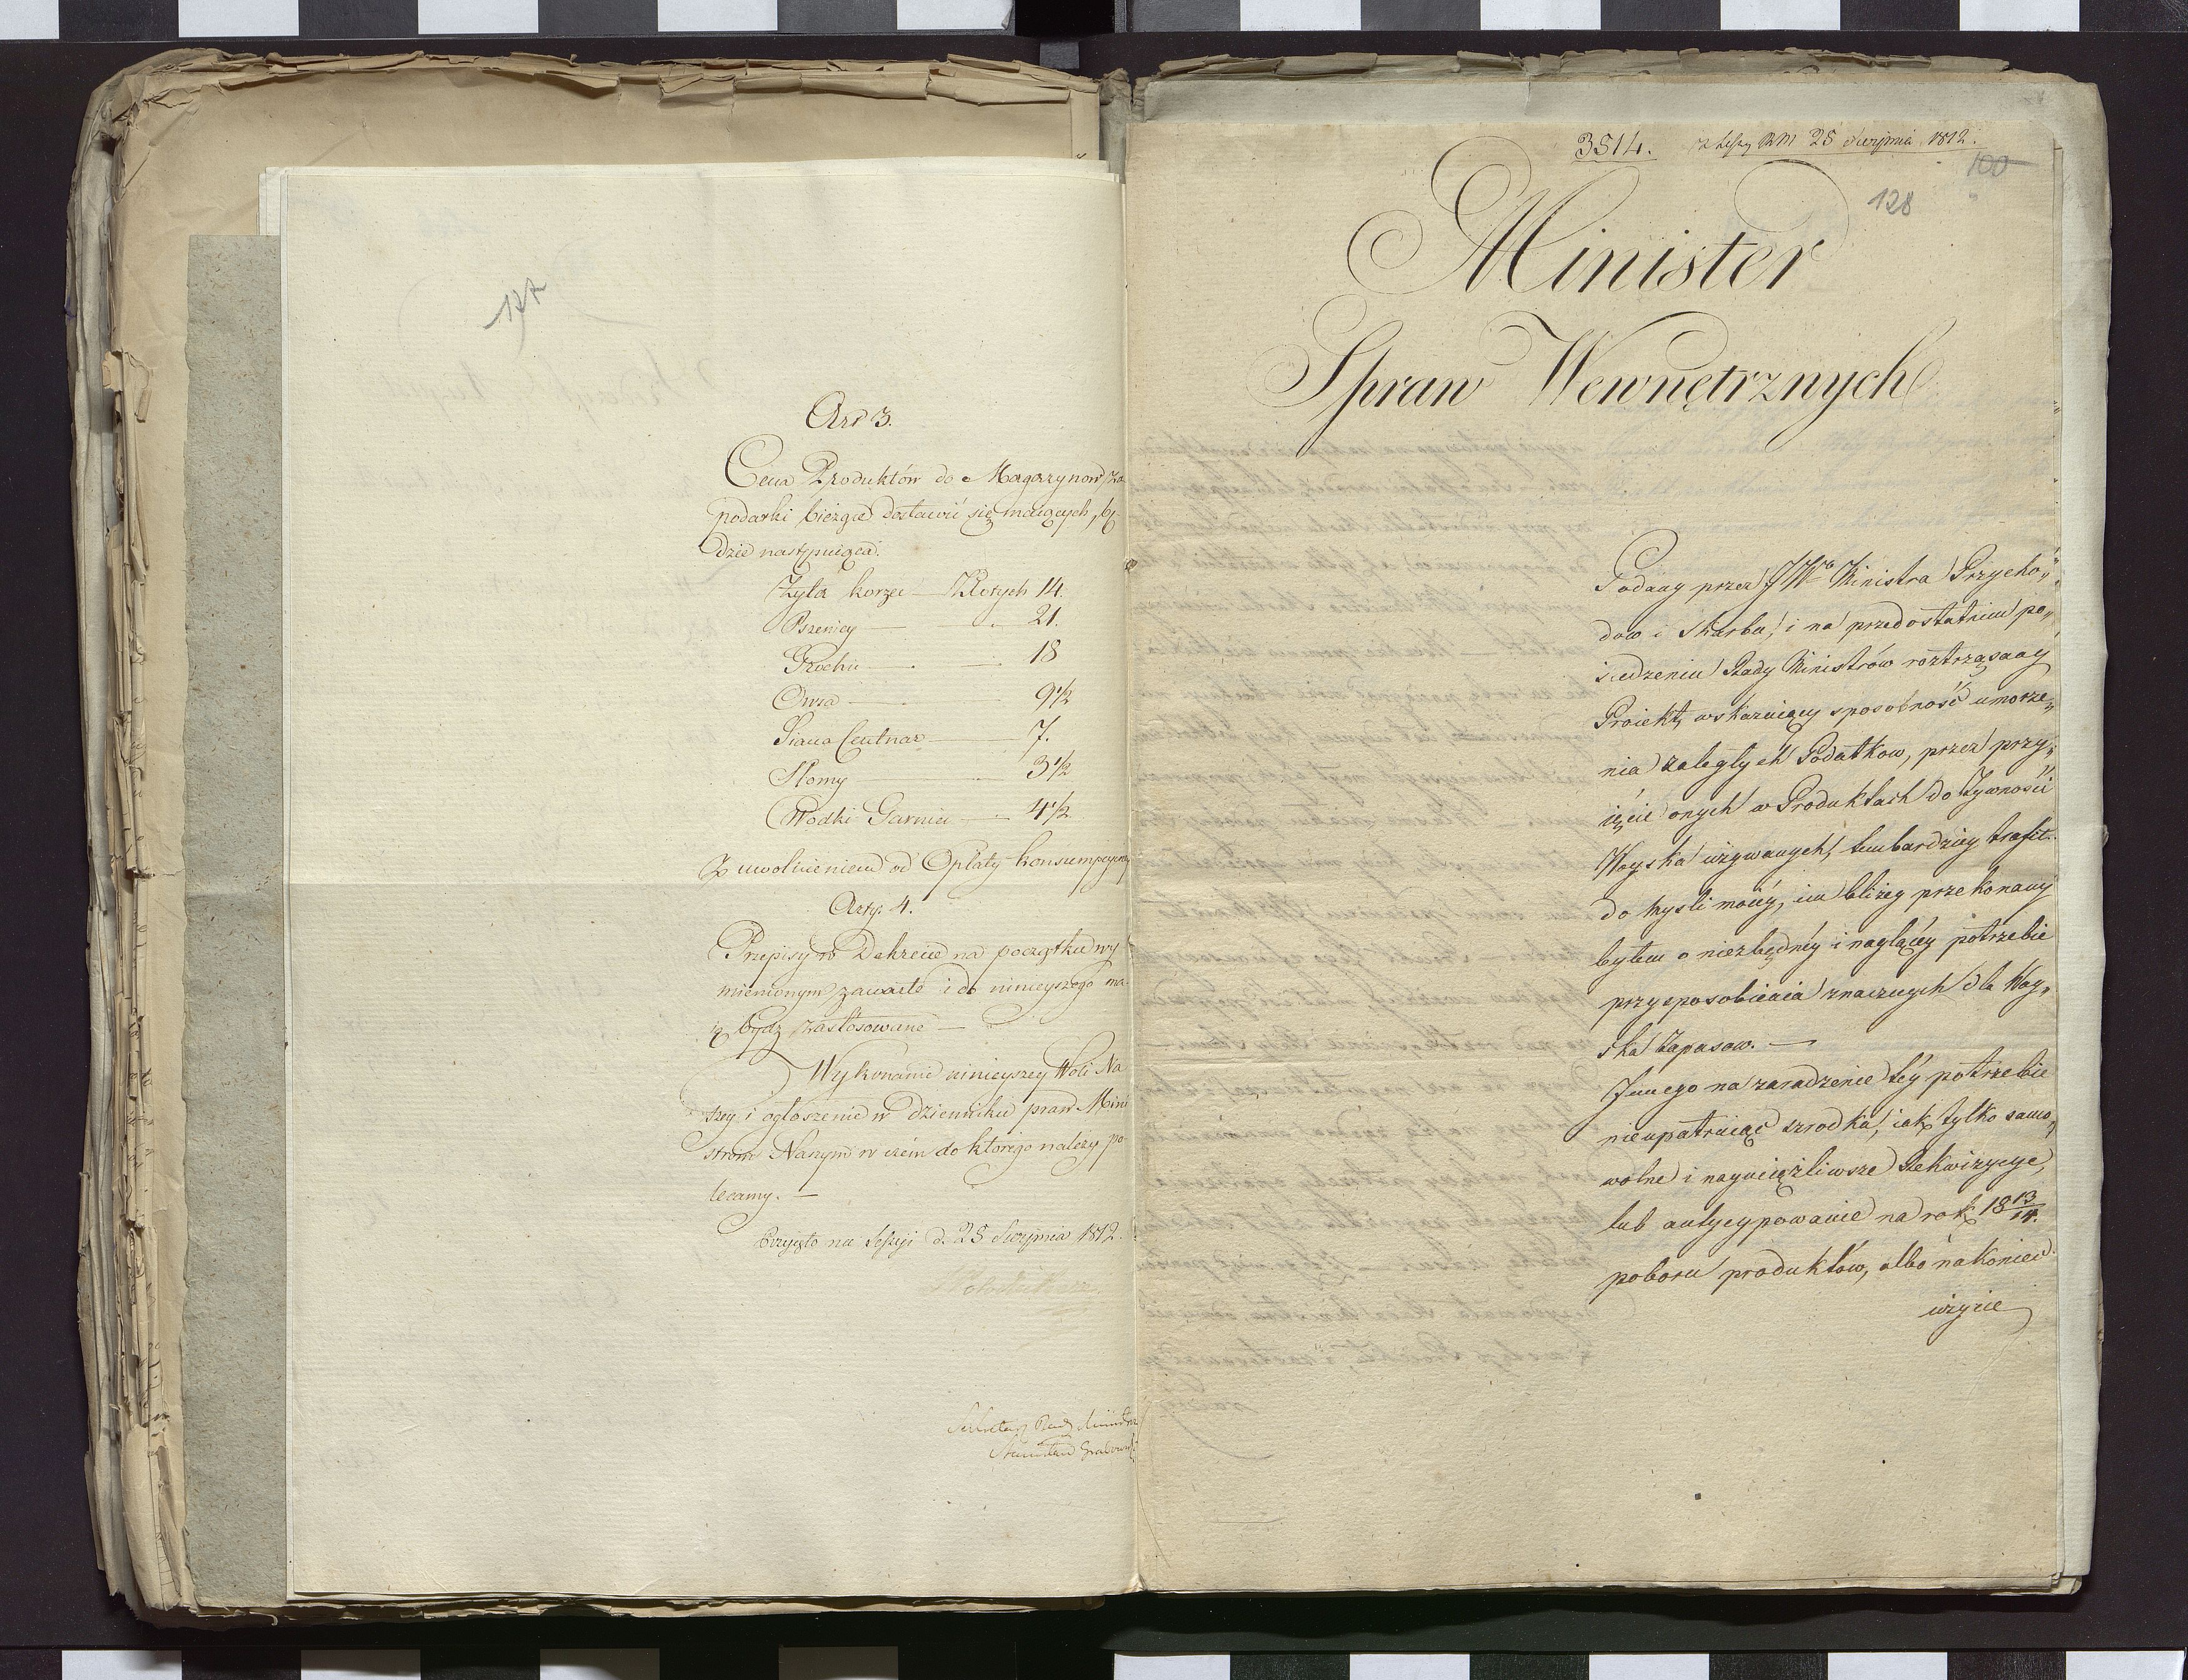 127
Art 3.
Cena Produktów do Magazynow za
podatki bieżące dostawić się maiących, bę
dzie następuiąca.
Żyta korzec — Złotych 14.
Pszenicy — 21.
Grochu — 18
Owsa — 9 1/2
Siana Centnar — 7.
Słomy — 3 1/2
Wodki Garniec — 4 1/2
Z uwolnieniem od Opłaty konsumpcyiney
Arty: 4.
Przepisy w Dekrecie na początku wy
mienionym zawarte i do ninieyszego ma-
ią bydz zastosowane —
Wykonanie ninieyszey Woli Na
szey i ogłoszenie w dzienniku praw Mini
strom Naszym w czém do ktorego należy po
lecamy. —
Przyięto na Sessyi d. 25 Sierpnia 1812.
Sekretarz Rady Ministrow
Stanisław Grabowski
3514. Sessyi RM 25 Sierpnia 1812.
100
128
Minister
Spraw Wewnętrznych
Podany przez JWgo Ministra Przycho„
dow i Skarbu, i na przedostatniem po„
siedzeniu Rady Ministrów roztrząsany
Proiekt, wskazuiący sposobność umorze„
nia zaległych Podatkow, przez przy„
ięcie onych w Produktach do Żywności
Woyska używanych, tembardziey trafił
do myśli moiéy, im bliżey przekonany
bytem o niezbędnéy i naglącéy potrzebie
przysposobienia znacznych dla Woy„
ska Zapasow. —
Innego na zaradzenie téy potrzebie
nieupatruiąc szrodka, iak tylko samo„
wolne i nayuciążliwsze Rekwizycye,
lub antycypowanie na rok 18 13/14.
poboru produktów, albo nakoniec
użycie